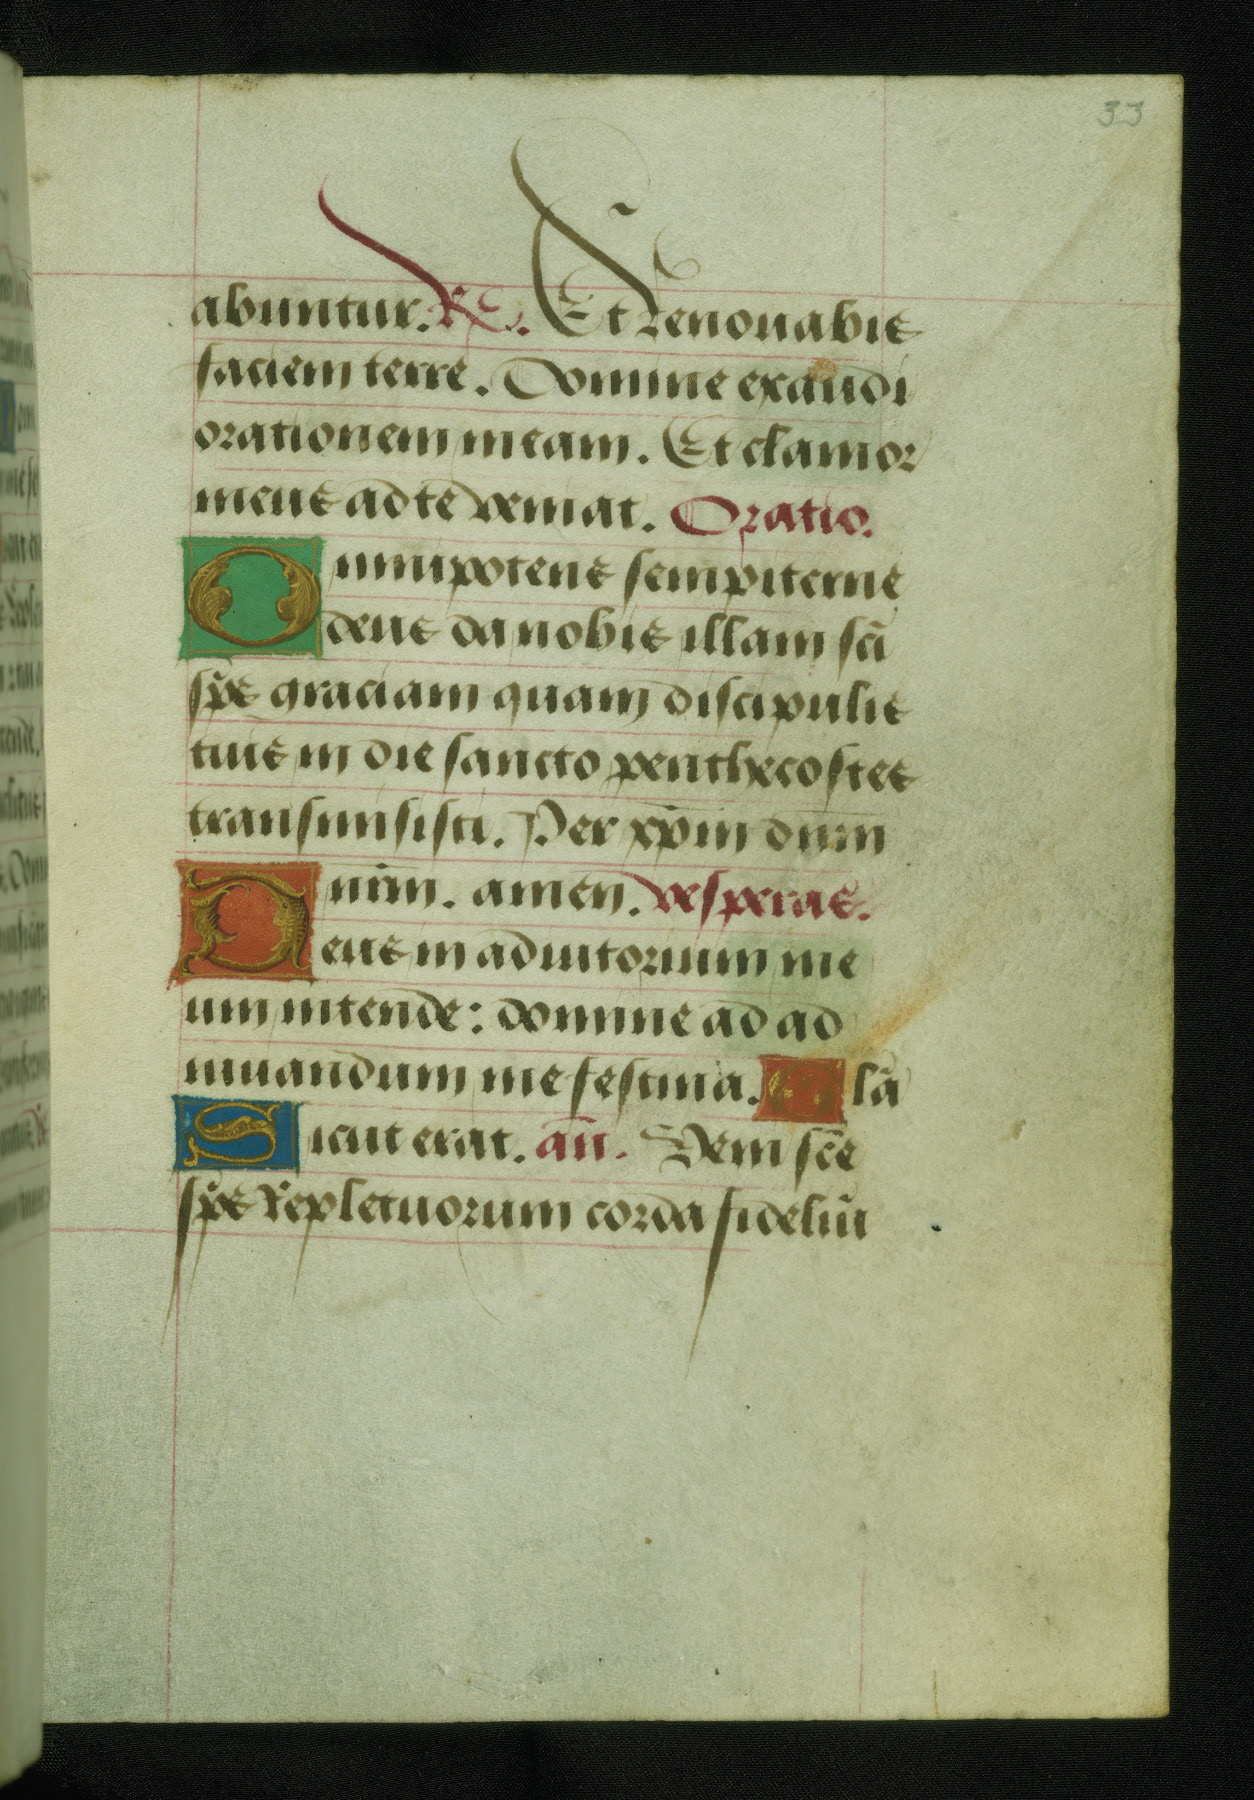 33
abuntur. R. Et renouabis
faciem terre. Domine exaudi
orationem meam. Et clamor
meus ad te veniat. Oratio.
Omnipotens sempiterne
deus da nobis illam sc̄i
sp̄s graciam quam discipulis
tuis in die sancto penthecostes
transmisisti. Per xp̄m dnm
nr̄m. amen. vesperas.
Deus in adiutorium me
um intende: domine ad ad
iuuandum me festina. Glā
Sicut erat. an̄. Veni sc̄e
sp̄s reple tuorum corda fideliū